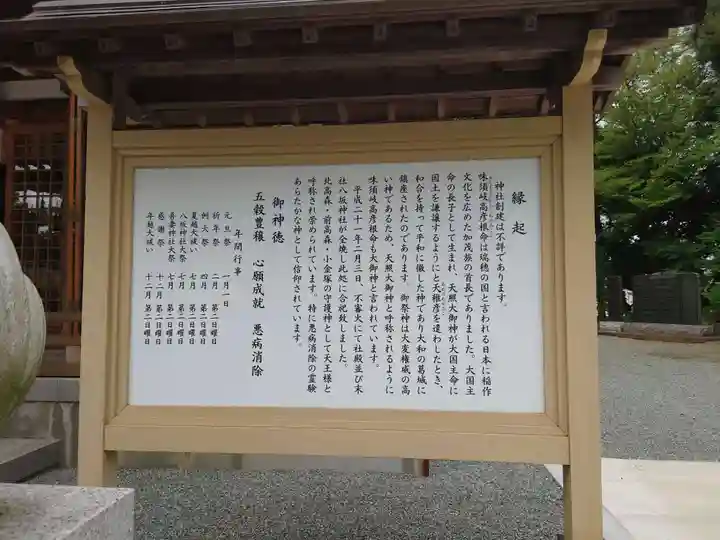 縁起
神社創建は不詳であります。
味須岐高彦根命は瑞穂の国と言われる日本に稲作
文化を広めた加茂族の首長でありました。大国主
命の長子として生まれ、天照大御神が大国主命に
国土を譲渡するようにと天稚彦を遣わしたとき、
和合を持って平和に徹した神であり大和の葛城に
鎮座されたのであります。御祭神は大変権威の高
い神であるため、天照大御神と呼称されるように
味須岐高彦根命も大御神と言われています。
平成二十一年二月三日、不審火にて社殿並び末
社八坂神社が全焼し此処に合祀致しました。
北高森・前高森・小金塚の守護神として天王様と
呼称され崇められています。特に悪病消除の霊験
あらたかな神として信仰されています。
御神徳
五穀豊穣 心願成就 悪病消除
年間行事
元旦祭 一月一日
祈年祭 二月 第二日曜日
例大祭 四月 第二日曜日
夏越大祓い 七月 第二日曜日
八坂神社大祭 七月 第二日曜日
吾妻神社大祭 七月 第二日曜日
感謝祭 十二月 第二日曜日
年越大祓い 十二月 第二日曜日